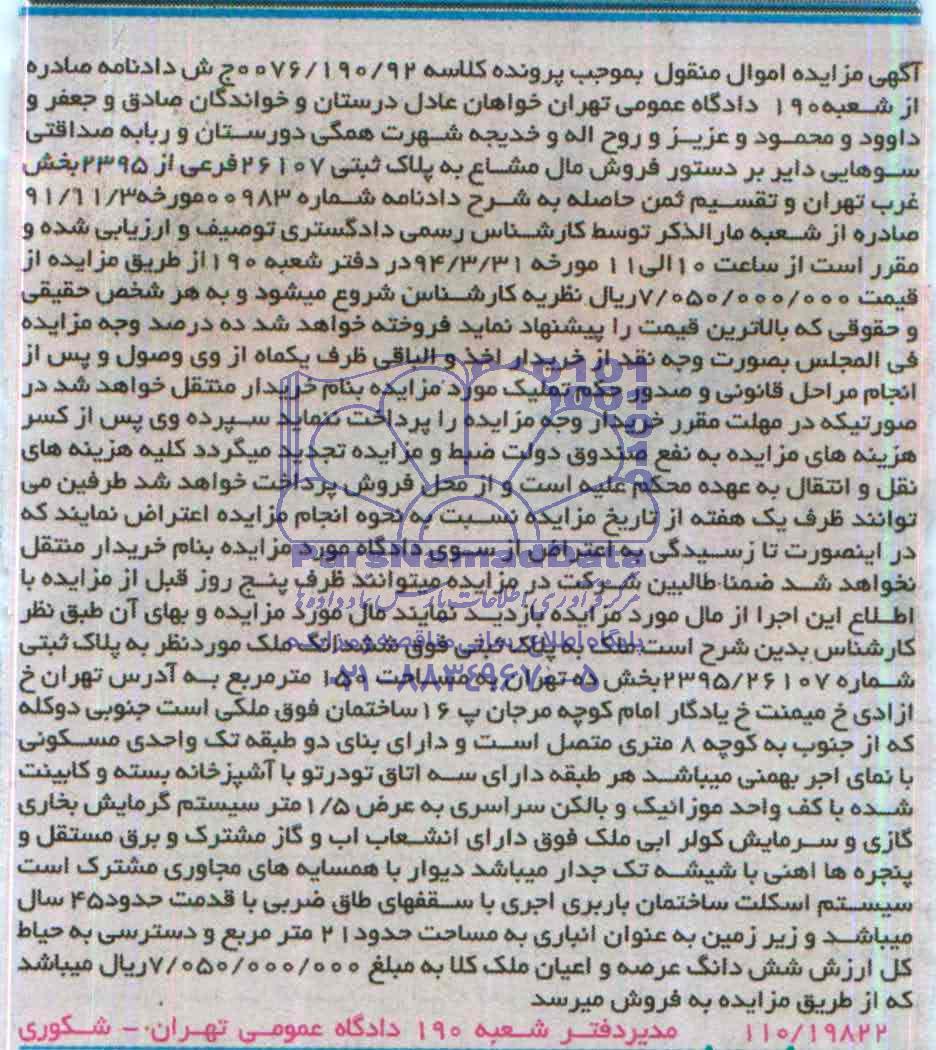 آگهی مزایده اموال منقول بموجب پرونده کلاسه ۰۰۷۶/۱۹۰/۹۲ج ش دادنامه صادره
از شعبه۱۹۰ دادگاه عمومی تهران خواهان عادل درستان و خواندگان صادق و جعفر و
داوود و محمود و عزیز و روح اله و خدیجه شهرت همگی دورستان و ربابه صداقتی
سوهایی دایر بر دستور فروش مال مشاع به پلاک ثبتی ۲۶۱۰۷فرعی از ۲۳۹۵بخش
غرب تهران و تقسیم ثمن حاصله به شرح دادنامه شماره ۰۰۹۸۳مورخه۹۱/۱۱/۳
صادره از شعبه مارالذکر توسط کارشناس رسمی دادگستری توصیف و ارزیابی شده و
مقرر است از ساعت ۱۰الی۱۱ مورخه ۹۴/۳/۳۱در دفتر شعبه ۱۹۰از طریق مزایده از
قیمت ۷/۰۵۰/۰۰۰/۰۰۰ریال نظریه کارشناس شروع میشود و به هر شخص حقیقی
و حقوقی که بالاترین قیمت را پیشنهاد نماید فروخته خواهد شد ده درصد وجه مزایده
فی المجلس بصورت وجه نقد از خریدار اخذ و الباقی ظرف یکماه از وی وصول و پس از
انجام مراحل قانونی و صدور حکم تملیک مورد مزایده بنام خریدار منتقل خواهد شد در
صورتیکه در مهلت مقرر خریدار وجه مزایده را پرداخت ننماید سپرده وی پس از کسر
هزینه های مزایده به نفع صندوق دولت ضبط و مزایده تجدید میگردد کلیه هزینه های
نقل و انتقال به عهده محکم علیه است و از محل فروش پرداخت خواهد شد طرفین می
توانند ظرف یک هفته از تاریخ مزایده نسبت به نحوه انجام مزایده اعتراض نمایند که
در اینصورت تا رسیدگی به اعتراض از سوی دادگاه مورد مزایده بنام خریدار منتقل
نخواهد شد ضمنا طالبین شرکت در مزایده میتوانند ظرف پنج روز قبل از مزایده با
اطلاع این اجرا از مال مورد مزایده بازدید نمایند مال مورد مزایده و بهای آن طبق نظر
کارشناس بدین شرح است ملک به پلاک ثبتی فوق ششدانگ ملک موردنظر به پلاک ثبتی
شماره ۲۳۹۵/۲۶۱۰۷بخش ده تهران به مساحت ۱۵۰ مترمربع به آدرس تهران خ
ازادی خ میمنت خ یادگار امام کوچه مرجان پ ۱۶ساختمان فوق ملکی است جنوبی دوکله
که از جنوب به کوچه ۸ متری متصل است و دارای بنای دو طبقه تک واحدی مسکونی
با نمای اجر بهمنی میباشد هر طبقه دارای سه اتاق تودرتو با آشپزخانه بسته و کابینت
شده با کف واحد موزائیک و بالکن سراسری به عرض ۱/۵متر سیستم گرمایش بخاری
گازی و سرمایش کولر ابی ملک فوق دارای انشعاب اب و گاز مشترک و برق مستقل و
پنجره ها اهنی با شیشه تک جدار میباشد دیوار با همسایه های مجاوری مشترک است
سیستم اسکلت ساختمان باربری اجری با سقفهای طاق ضربی با قدمت حدود۴۵ سال
میباشد و زیر زمین به عنوان انباری به مساحت حدود۲۱ متر مربع و دسترسی به حیاط
کل ارزش شش دانگ عرصه و اعیان ملک کلا به مبلغ ۷/۰۵۰/۰۰۰/۰۰۰ریال میباشد
که از طریق مزایده به فروش میرسد
۱۱۰/۱۹۸۲۲ مدیردفتر شعبه ۱۹۰ دادگاه عمومی تهران - شکوری
ParsNamadData
مرکز فرآوری اطلاعات پارس نماد داده ها
پایگاه اطلاع رسانی مناقصه مزایده
۰۲۱-۸۸۳۴۹۶۷۰-۵